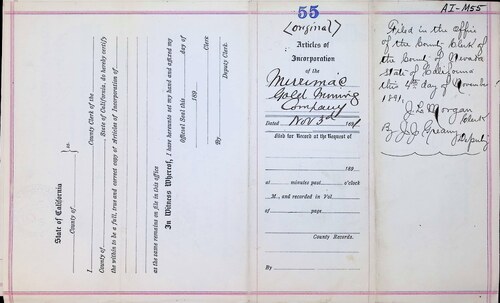 AI-M55
55
(original)
Articles of
Incorporation
of the
Merrimac
Gold Mining
Company
Dated Nov 3d 1891
Filed for Record at the Request of
189
at minutes past o'clock
M., and recorded in Vol.
of page
County Records.
By
Filed in the office
of the County Clerk of
the County of Nevada
State of California
this 4th day of November
1891,
J. L. Morgan
Clerk
By J. J. Greany
Deputy
State of California
County of ss.
I County Clerk of the
County of State of California, do hereby certify
the within to be a full, true and correct copy of Articles of Incorporation of
as the same remains on file in this office
In Witness Whereof, I have hereunto set my hand and affixed my
Official Seal this day of
189
Clerk
By
Deputy Clerk.